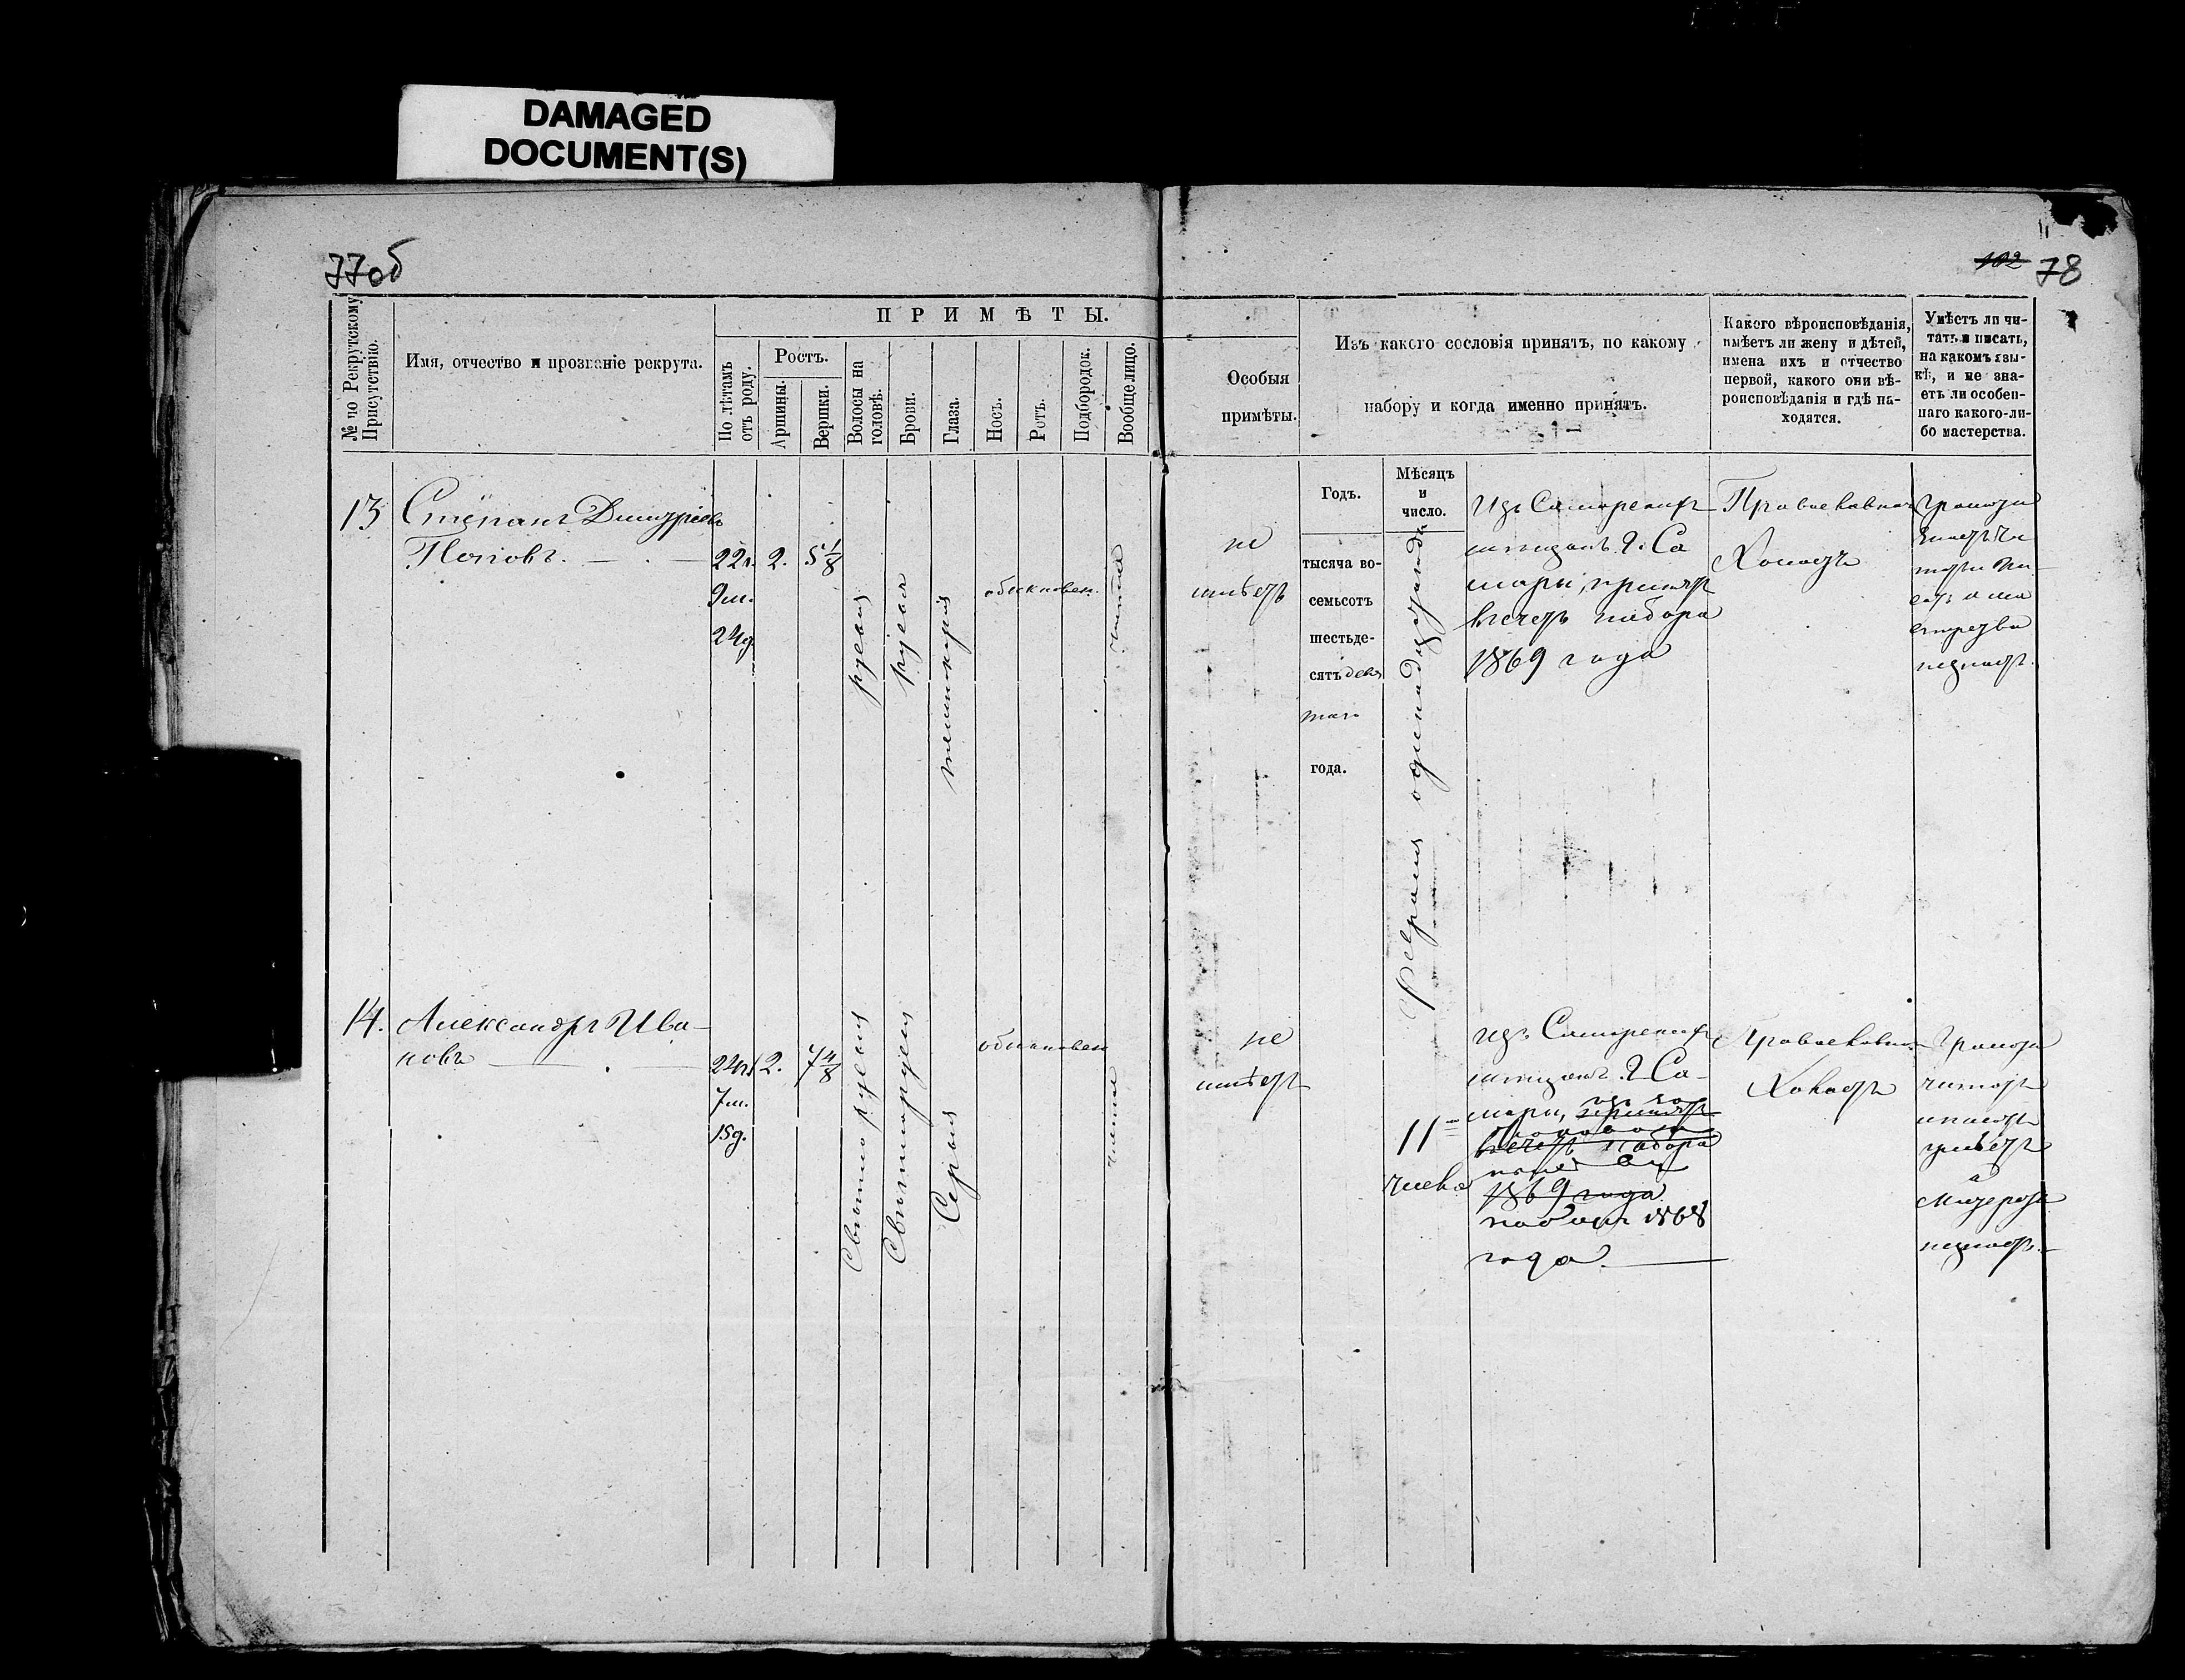 DAMAGED
DOCUMENT(S)
77об
102 78
№ по Рекрутскому
Присутствію.
Имя, отчество и прозваніе рекрута.
ПРИМѢТЫ.
По лѣтамъ
отъ роду.
Ростъ.
Аршины.
Вершки.
Волосы на
головѣ.
Брови.
Глаза.
Носъ.
Ротъ.
Подбородок.
Вообще лицо.
Особыя
примѣты.
Изъ какого сословія принятъ, по какому
набору и когда именно принятъ.
Какого вѣроисповѣданія,
имѣетъ ли жену и дѣтей,
имена ихъ и отчество
первой, какого они вѣ-
роисповѣданія и гдѣ на-
ходятся.
Умѣетъ ли чи-
тать и писать,
на какомъ язы-
кѣ, и не зна-
етъ ли особен-
наго какого-ли-
бо мастерства.
13
Степанъ Дмитріевъ
Поповъ.
22л.
9м.
24д.
2.
5 1/8
русыя
русыя
обыкновен.
чистое
не
имѣетъ
Годъ.
тысяча во-
семьсотъ
шестьде-
сятъ девя
таго
года.
Мѣсяцъ
и
число.
Февраля одинадцатаго
Изъ Самарскихъ
мѣщанъ г. Са
мары, принятъ
въ счетъ набора
1869 года
Православнаго
Холостъ
Грамоте
мастерства
незнаетъ.
14.
Александръ Ива-
новъ
24л.
7м.
15д.
2.
7 4/8
Свѣтлорусыя
Свѣтлорусыя
Серыя
обыкновен
чистое
не
имѣетъ
11
числа
изъ Самарскихъ
мѣщанъ г. Са-
мары, принятъ
въ счетъ набора
1869 года
набору 1868
года.
Православнаго
Холостъ
Грамоте
читать
и писать
умѣетъ
а
мастерства
незнаетъ.